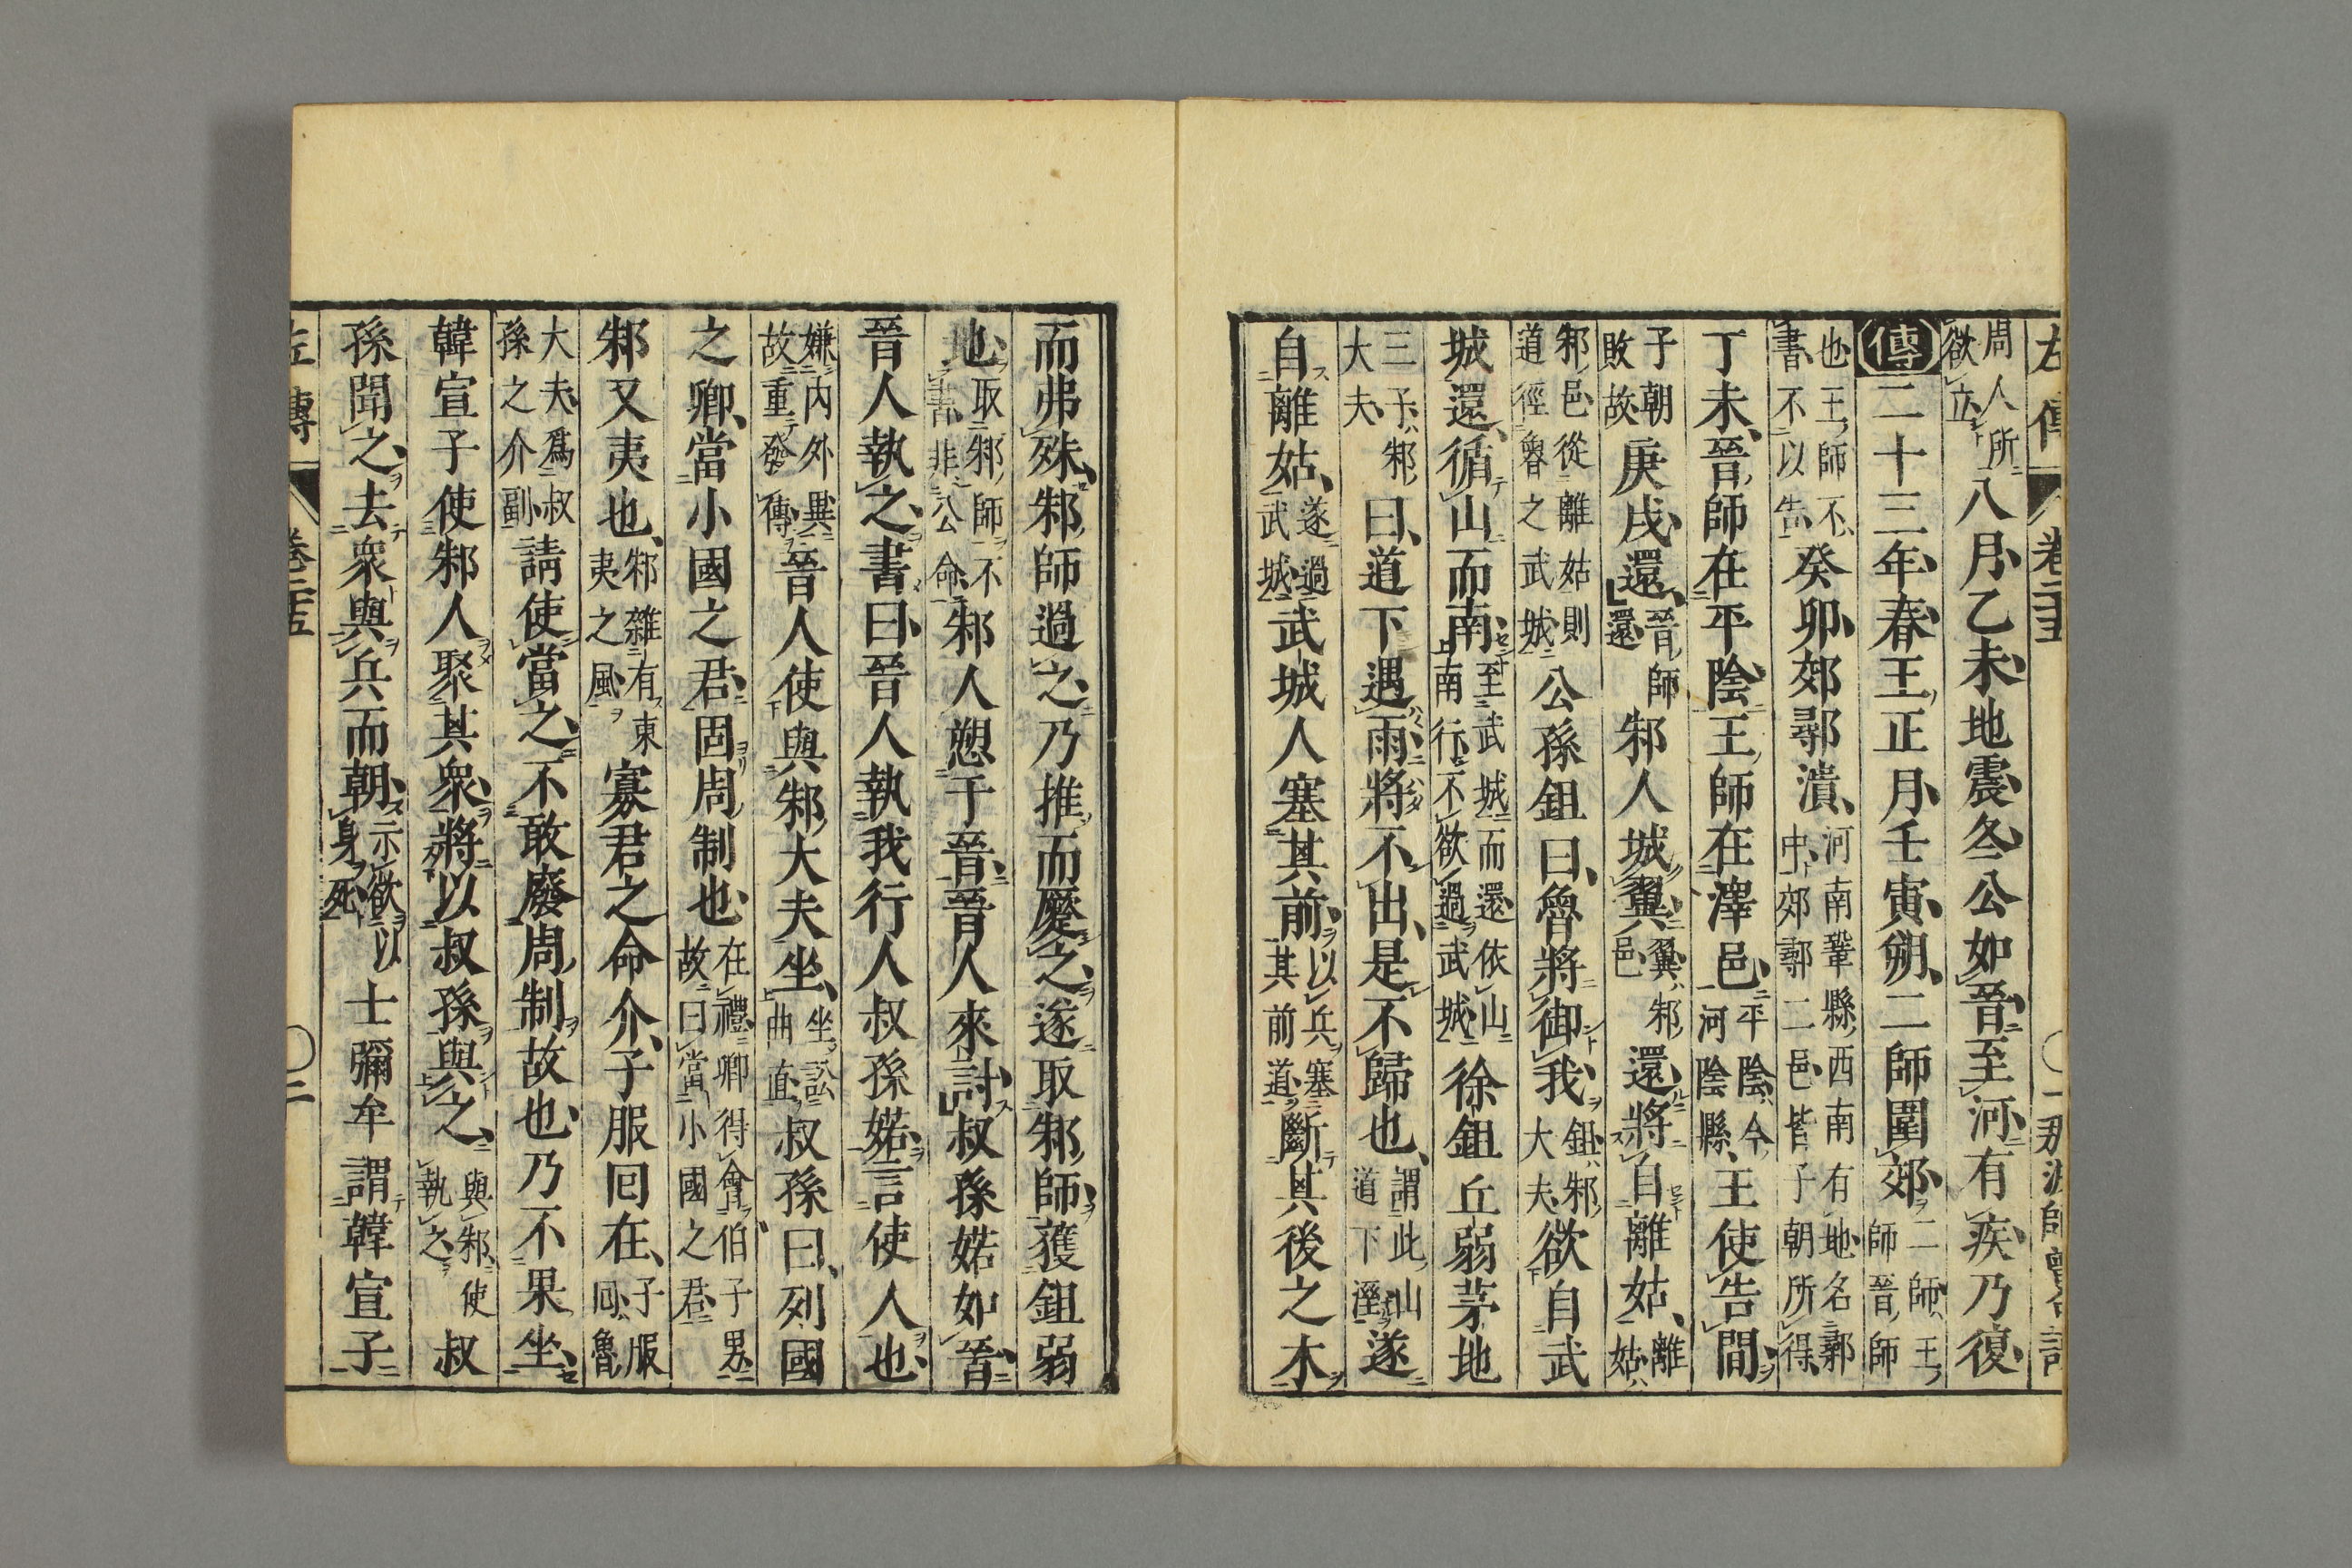 左傳 卷二十五 一 那波師曾句讀
周人所欲立八月乙未地震冬公如晉至河有疾乃復
傳二十三年春王正月壬寅朔二師圍郊二師王師晉師
也王師不書不以告癸卯郊鄩潰河南鞏縣西南有地名鄩中郊鄩二邑皆子朝所得
丁未晉師在平陰王師在澤邑平陰今河陰縣王使告間
子朝敗故庚戌還晉師還邾人城翼翼邾邑還將自離姑離姑
邾邑從離姑則道徑魯之武城公孫鉏曰魯將御我鉏邾大夫欲自武
城還循山而南至武城而還依山南行不欲過武城徐鉏丘弱茅地
三子邾大夫曰道下遇雨將不出是不歸也謂此山道下溼遂
自離姑遂過武城武城人塞其前以兵塞其前道斷其後之木
而弗殊邾師過之乃推而蹷之遂取邾師獲鉏弱
地取邾師不書非公命邾人愬于晉晉人來討叔孫婼如晉
晉人執之書曰晉人執我行人叔孫婼言使人也
嫌內外異故重發傳晉人使與邾大夫坐坐訟曲直叔孫曰列國
之卿當小國之君固周制也在禮卿得會伯子男故曰當小國之君
邾又夷也邾雜有東夷之風寡君之命介子服回在子服回魯
大夫爲叔孫之介副請使當之不敢廢周制故也乃不果坐
韓宣子使邾人聚其衆將以叔孫與之與邾使執之叔
孫聞之去衆與兵而朝示欲以身死士彌牟謂韓宣子
左傳 卷二十五 二